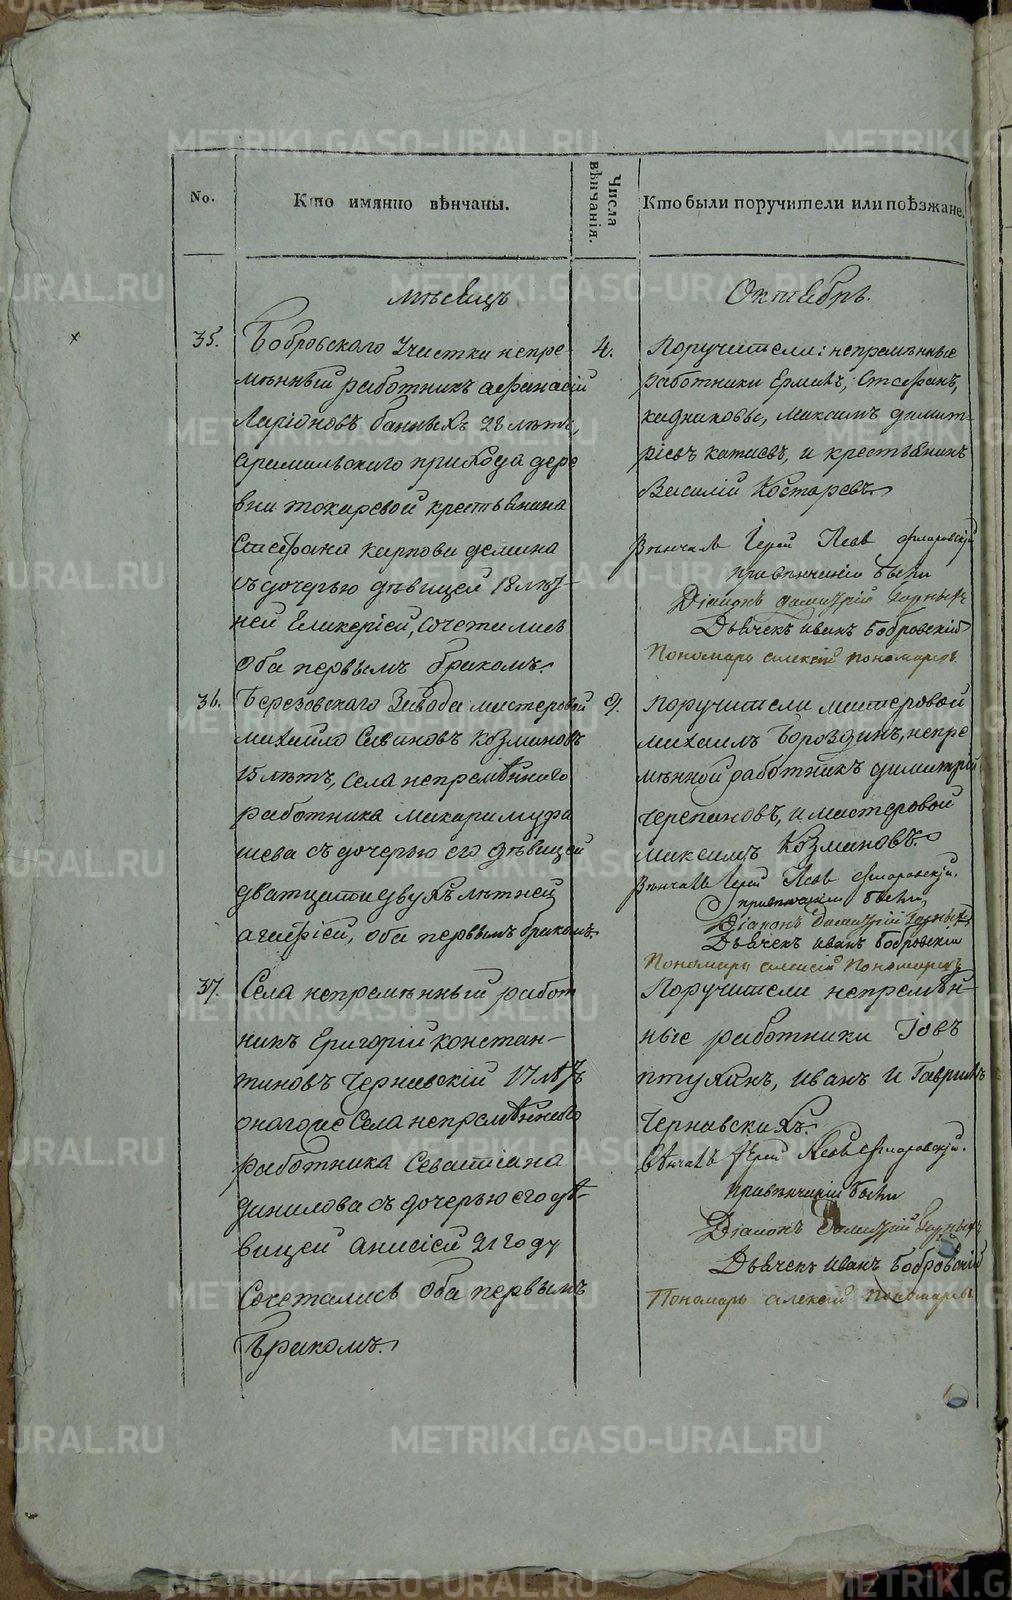 No.
Кто имянно вѣнчаны.
Числа вѣнчанія.
Кто были поручители или поѣзжане.
мѣсяцъ
Октябрь.
35.
Бобровскаго Участка непре-
мѣнный работникъ Афанасій
Ларіоновъ Банныхъ 28 лѣтъ,
Арамильскаго прихода дере
вни токаревой крестьянина
Стефана карпова демина
съ дочерью дѣвицей 18 лѣт-
ней Гликеріей, сочетались
оба первымъ бракомъ.
4.
Поручители: непремѣнные
работники Ермилъ, Стефанъ,
кадниковы, Максимъ димит-
ріевъ катаевъ, и крестьянинъ
Василій Костаревъ
Вѣнчалъ Іерей Іевъ
при вѣнчаніи были
Діаконъ Димитрій Горныхъ
Дьячекъ Иванъ Бобровскій
Пономарь Алексій Пономаревъ
36.
Березовскаго Завода мастеровой
михайло Савиновъ Козминовъ
15 лѣтъ, Села непремѣннаго
работника макара мура
шева съ дочерью его дѣвицей
дватцати двухъ лѣтней
агафіей, оба первымъ бракомъ.
9.
поручители мастеровой
михаилъ Бороздинъ, непре
мѣнной работникъ димитрій
черепановъ, и мастеровой
максимъ Козминовъ.
Вѣнчалъ Іерей Іевъ
при вѣнчаніи были,
Діаконъ Димитрій Горныхъ
Дьячекъ Иванъ Бобровскій
Пономарь Алексій Пономаревъ
37.
Села непремѣнный работ
никъ Григорій констан-
тиновъ Чернавскій 17 лѣтъ
онагоже Села непремѣннаго
работника Севастіана
данилова съ дочерью его дѣ-
вицей Анисіей 21 году
Сочетались оба первымъ
Бракомъ.
Поручители непремѣн-
ные работники Іовъ
птухинъ, иванъ и Гаврилъ
Чернавскихъ.
Вѣнчалъ Іерей Іевъ
при вѣнчаніи были
Діаконъ Димитрій Горныхъ
Дьячекъ Иванъ Бобровскій
Пономарь Алексій Пономаревъ
METRIKI.GASO-URAL.RU